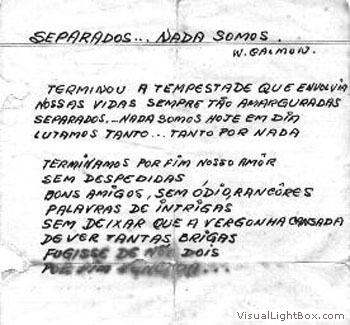 SEPARADOS... NADA SOMOS.
W. GALMON.
TERMINOU A TEMPESTADE QUE ENVOLVIA
NOSSAS VIDAS SEMPRE TÃO AMARGURADAS
SEPARADOS... NADA SOMOS HOJE EM DIA
LUTAMOS TANTO... TANTO POR NADA
TERMINAMOS POR FIM NOSSO AMÔR
SEM DESPEDIDAS
BONS AMIGOS, SEM ÓDIO, RANCÔRES
PALAVRAS DE INTRIGAS
SEM DEIXAR QUE A VERGONHA CANSADA
DE VER TANTAS BRIGAS
FUGISSE DE NÓS DOIS
POR FIM
VisualLightBox.com